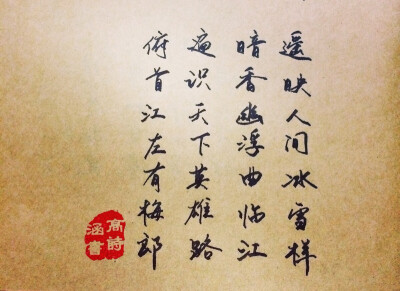 遥映人间冰雪样
暗香幽浮曲临江
遍识天下英雄路
俯首江左有梅郎
高诗涵书